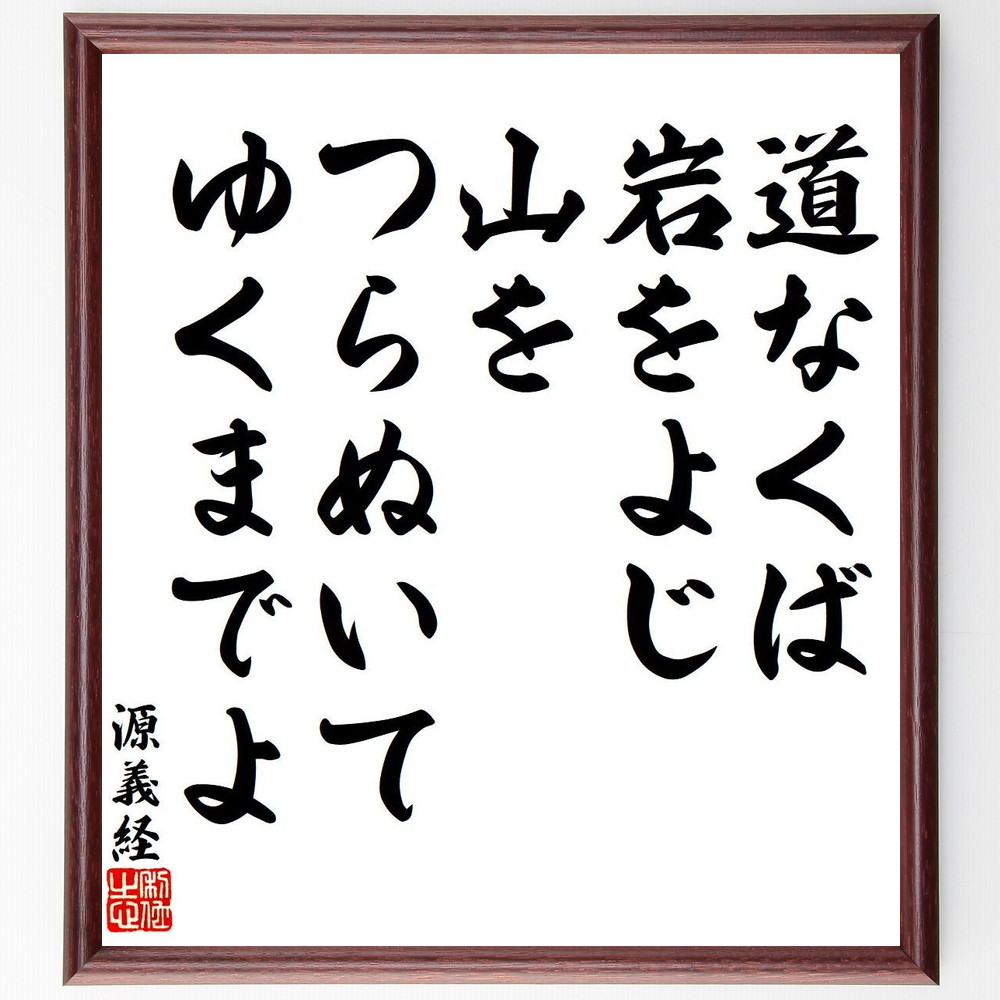 道なくば
岩をよじ
山を
つらぬいて
ゆくまでよ
源義経